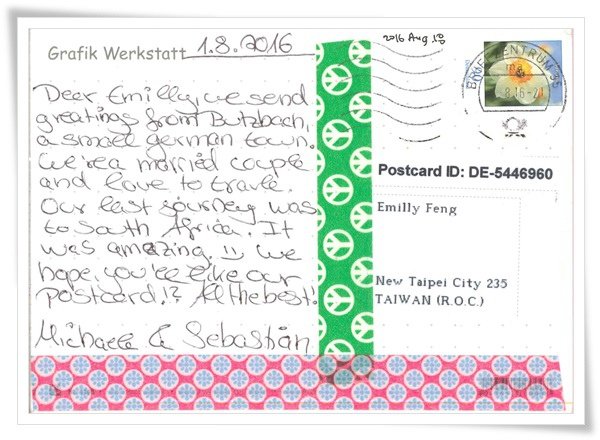 Grafik Werkstatt 1.8.2016
Dear Emilly, we send
greetings from Butzbach,
a small german town.
We'rea married couple
and love to travle.
Our last journey was
to South Africa. It
was amazing. :) We
hope, you'll like our
Postcard!? All the best!
Michaela & Sebastian
2016 Aug 10
BRIEFZENTRUM 35
Postcard ID: DE-5446960
Emilly Feng
New Taipei City 235
TAIWAN (R.O.C.)